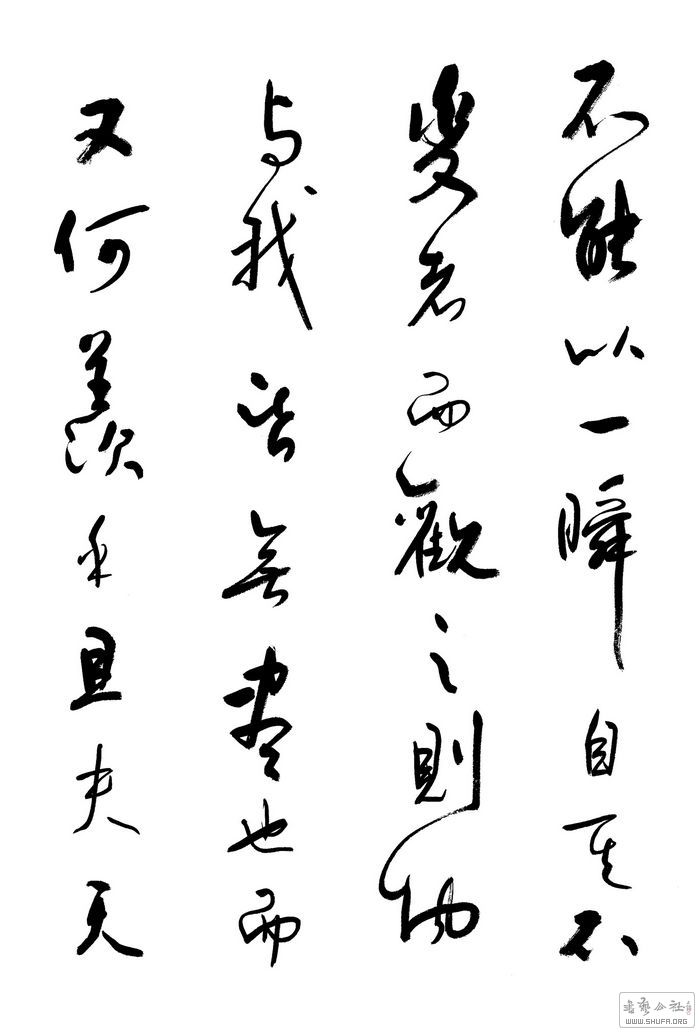 不能以一瞬自其不
變者而觀之則物
与我皆無盡也而
又何羨乎且夫天
书艺公社
WWW.SHUFA.ORG